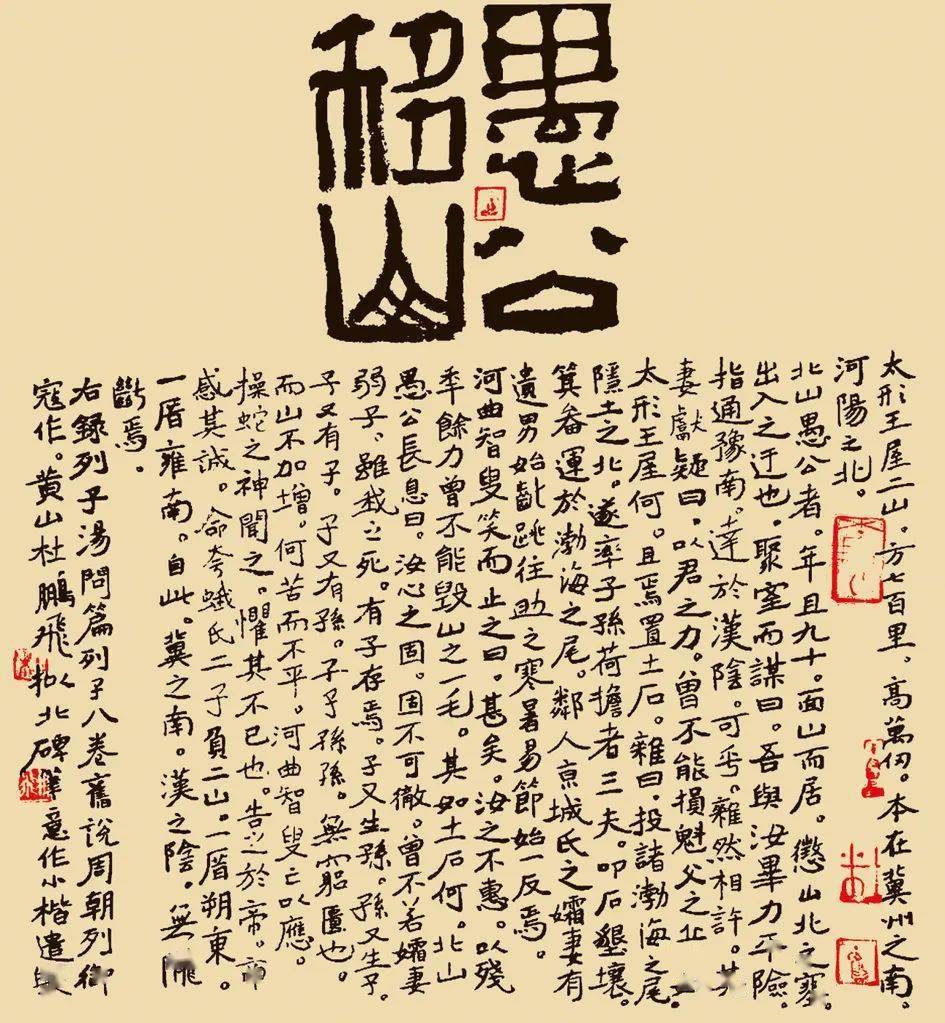 愚公
移山
太形王屋二山。方七百里。高萬仞。本在冀州之南。
河陽之北。
北山愚公者。年且九十。面山而居。懲山北之塞。
出入之迂也。聚室而謀曰。吾與汝畢力平險。
指通豫南。達於漢陰。可乎。雜然相許。其
妻獻疑曰。以君之力。曾不能損魁父之丘
太形王屋何。且焉置土石。雜曰。投諸渤海之尾。
隱土之北。遂率子孫荷擔者三夫。叩石墾壤。
箕畚運於渤海之尾。鄰人京城氏之孀妻有
遺男始齔跳往助之寒暑易節始一反焉。
河曲智叟笑而止之曰。甚矣。汝之不惠。以殘
年餘力曾不能毀山之一毛。其如土石何。北山
愚公長息曰。汝心之固。固不可徹。曾不若孀妻
弱子。雖我之死。有子存焉。子又生孫。孫又生子。
子又有子。子又有孫。子子孫孫。無窮匱也。
而山不加增。何苦而不平。河曲智叟亡以應。
操蛇之神聞之。懼其不已也。告之於帝。帝
感其誠。命夸蛾氏二子負二山。一厝朔東。
一厝雍南。自此。冀之南。漢之陰。無隴
斷焉。
右錄列子湯問篇列子八卷舊說周朝列御
寇作。黃山杜鵬飛擬北碑筆意作小楷遣